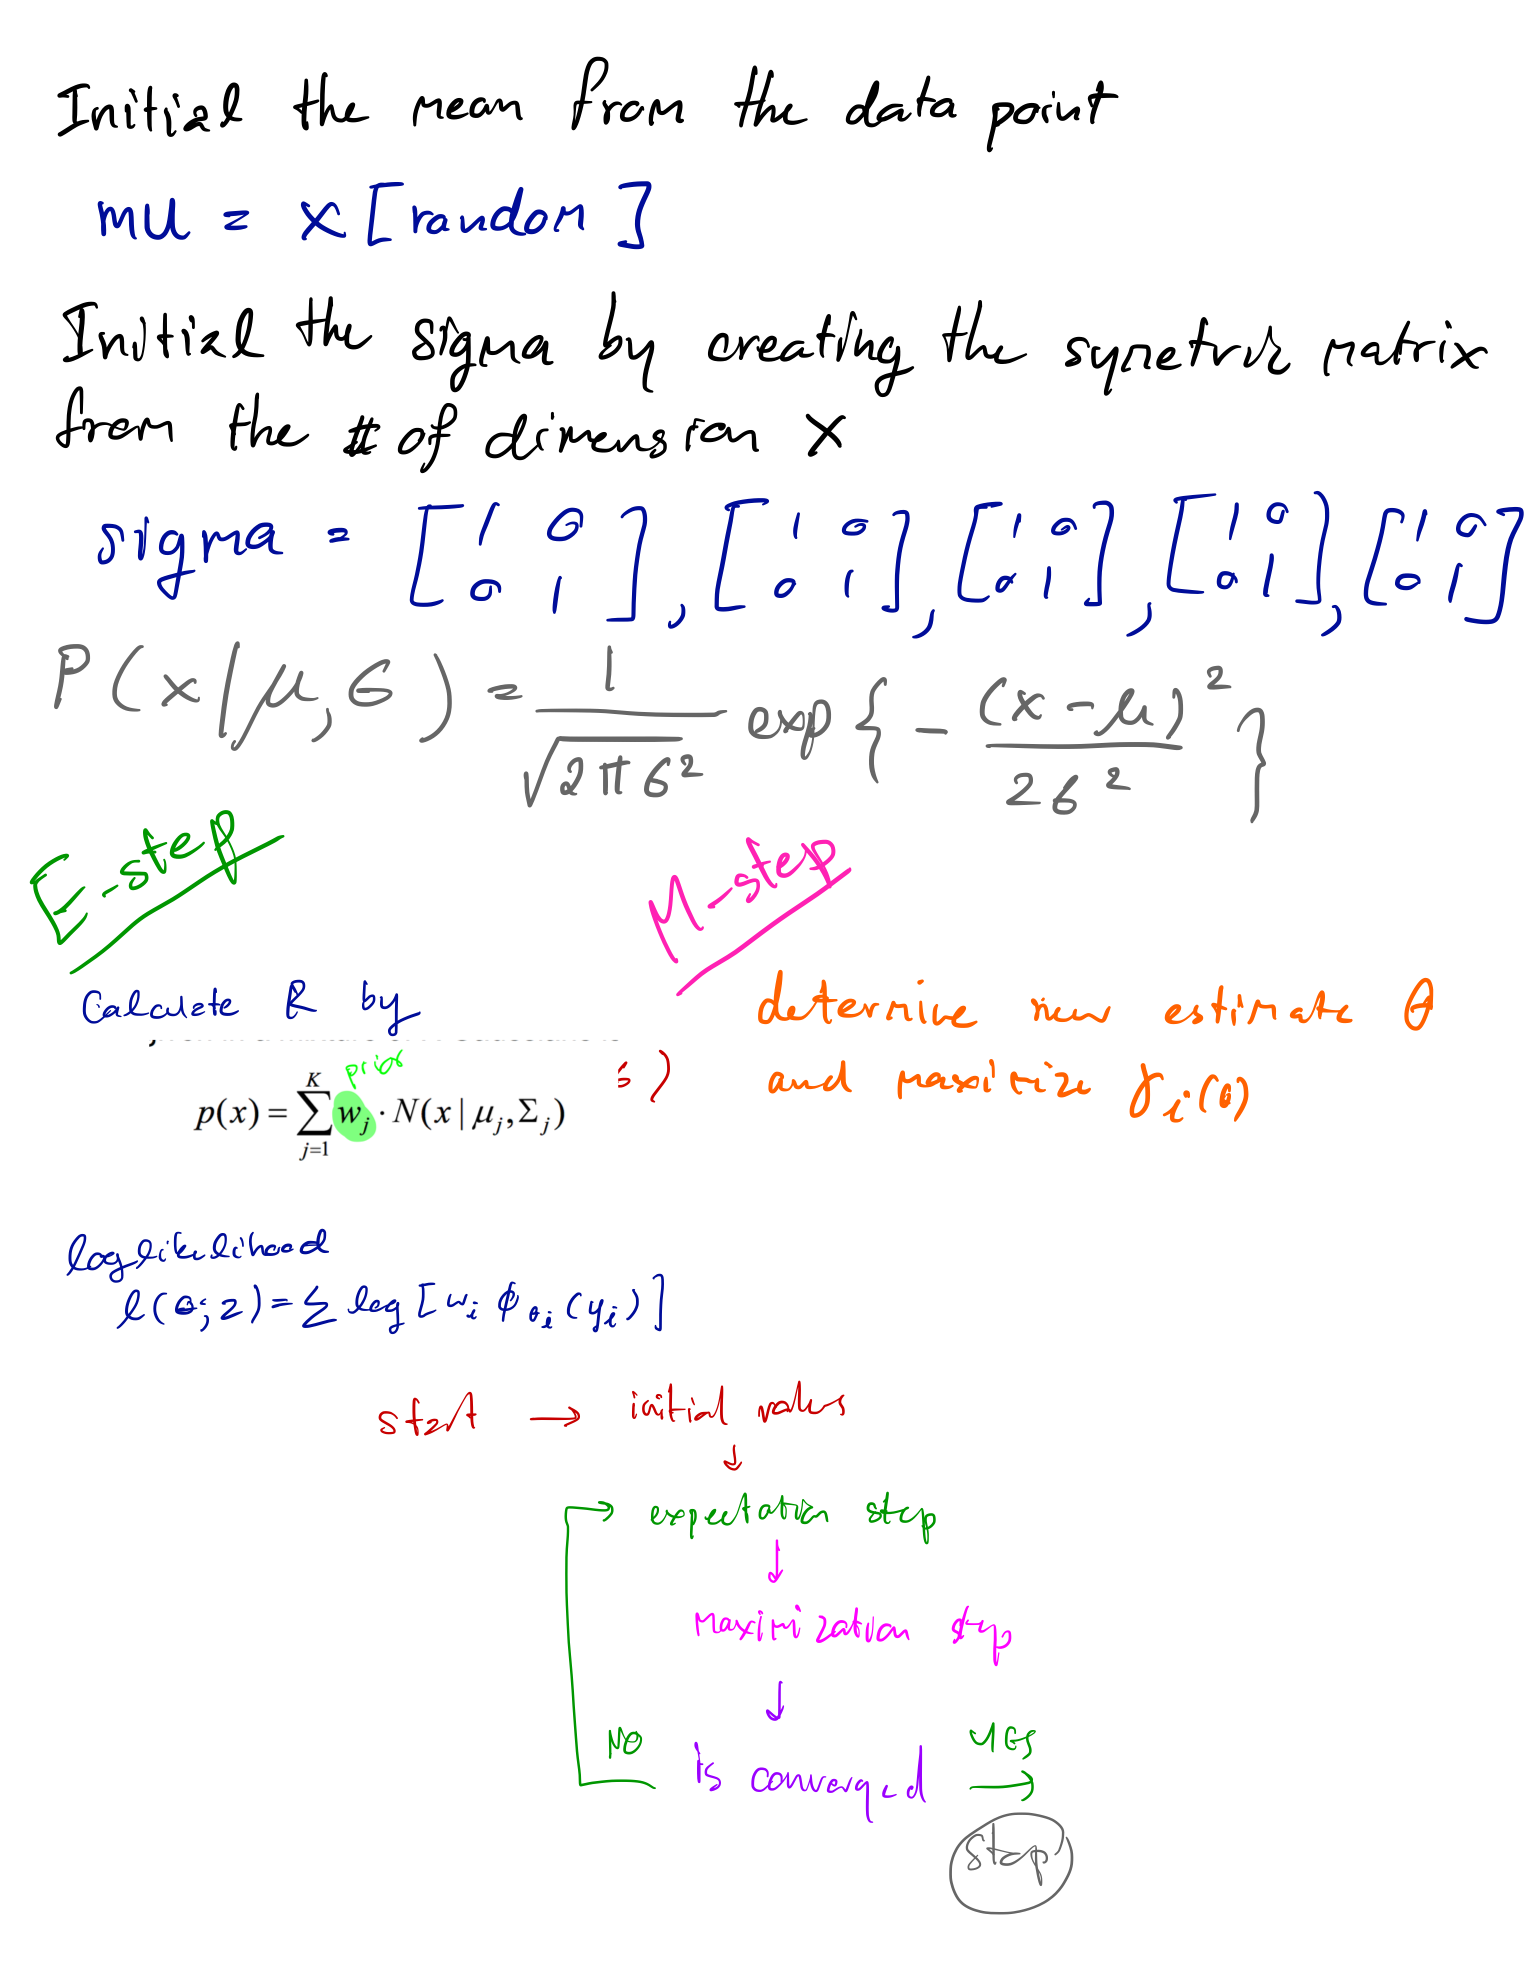 Initial the mean from the data point
mu = x [random]
Initial the sigma by creating the symetric matrix
from the # of dimension X
sigma = [1 0 0 1], [1 0 0 1], [1 0 0 1], [1 0 0 1], [1 0 0 1]
P(x|μ,σ) = 1/√(2πσ²) exp{ - (x-μ)²/2σ² }
E-step
M-step
Calculate R by
determine new estimate θ
and maximize γi(θ)
prior
s)
p(x) = Σ_{j=1}^{K} w_j · N(x | μ_j, Σ_j)
loglikelihood
l(θ; z) = Σ log [w_i φ_{θ_i}(y_i)]
start → initial values
↓
→ expectation step
↓
Maximization step
↓
NO is converged YES →
stop